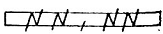 NN, NN